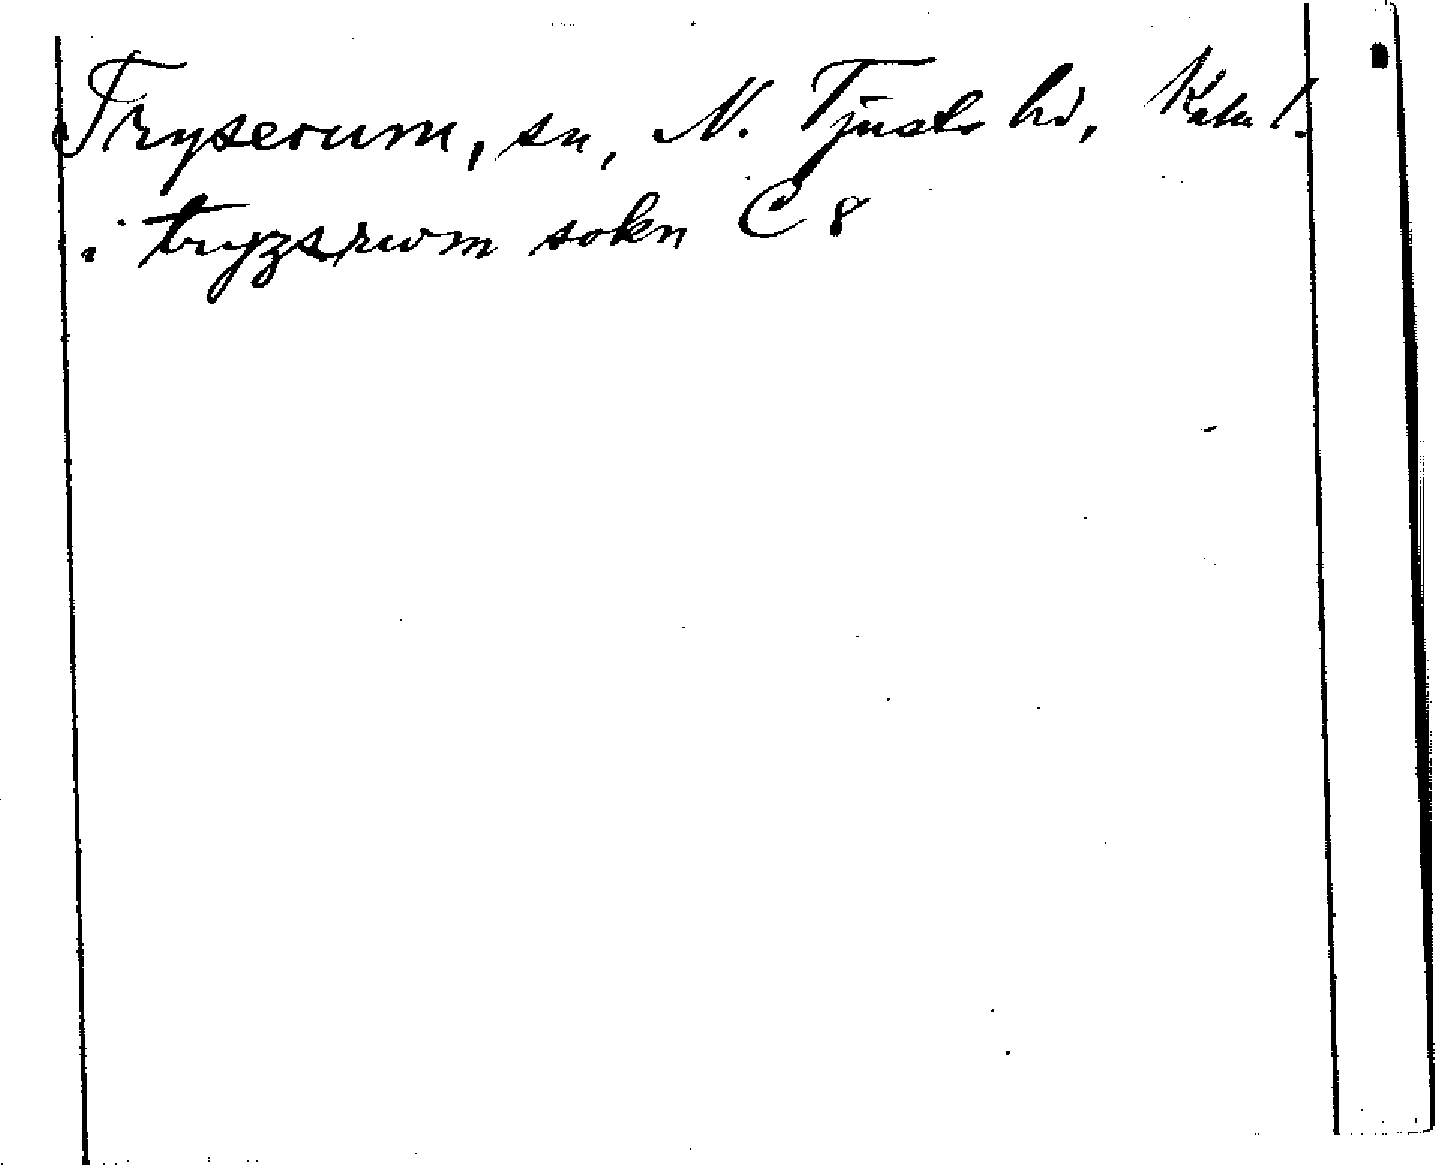 Tryserum, sn, N. Tjusts hd, Kalm l.
i tryzsrwm sokn C 8